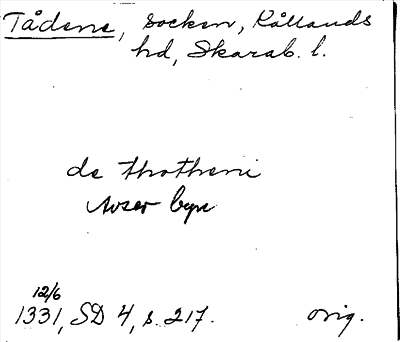 Tådene, socken, Kållands
hd, Skarab. l.
de thotheni
Avser byn
12/6
1331, SD 4, s. 217. orig.